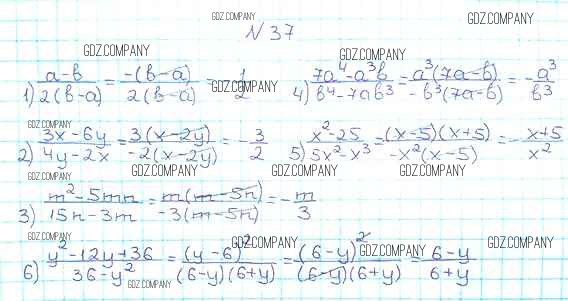 GDZ.COMPANY GDZ.COMPANY
N 37
GDZ.COMPANY GDZ.COMPANY
1) (a-b)/(2(b-a)) = (-(b-a))/(2(b-a)) = 1/2 GDZ.COMPANY 4) (7a⁴-a³b)/(b⁴-7ab³) = (a³(7a-b))/(-b³(7a-b)) = -a³/b³
GDZ.COMPANY GDZ.COMPANY
2) (3x-6y)/(4y-2x) = (3(x-2y))/(-2(x-2y)) = -3/2 5) (x²-25)/(5x²-x³) = ((x-5)(x+5))/(-x²(x-5)) = -(x+5)/x²
GDZ.COMPANY GDZ.COMPANY GDZ.COMPANY
3) (m²-5mn)/(15n-3m) = (m(m-5n))/(-3(m-5n)) = -m/3
GDZ.COMPANY GDZ.COMPANY GDZ.COMPANY GDZ.COMPANY
6) (y²-12y+36)/(36-y²) = (y-6)²/((6-y)(6+y)) = (6-y)²/((6-y)(6+y)) = (6-y)/(6+y)
GDZ.COMPANY